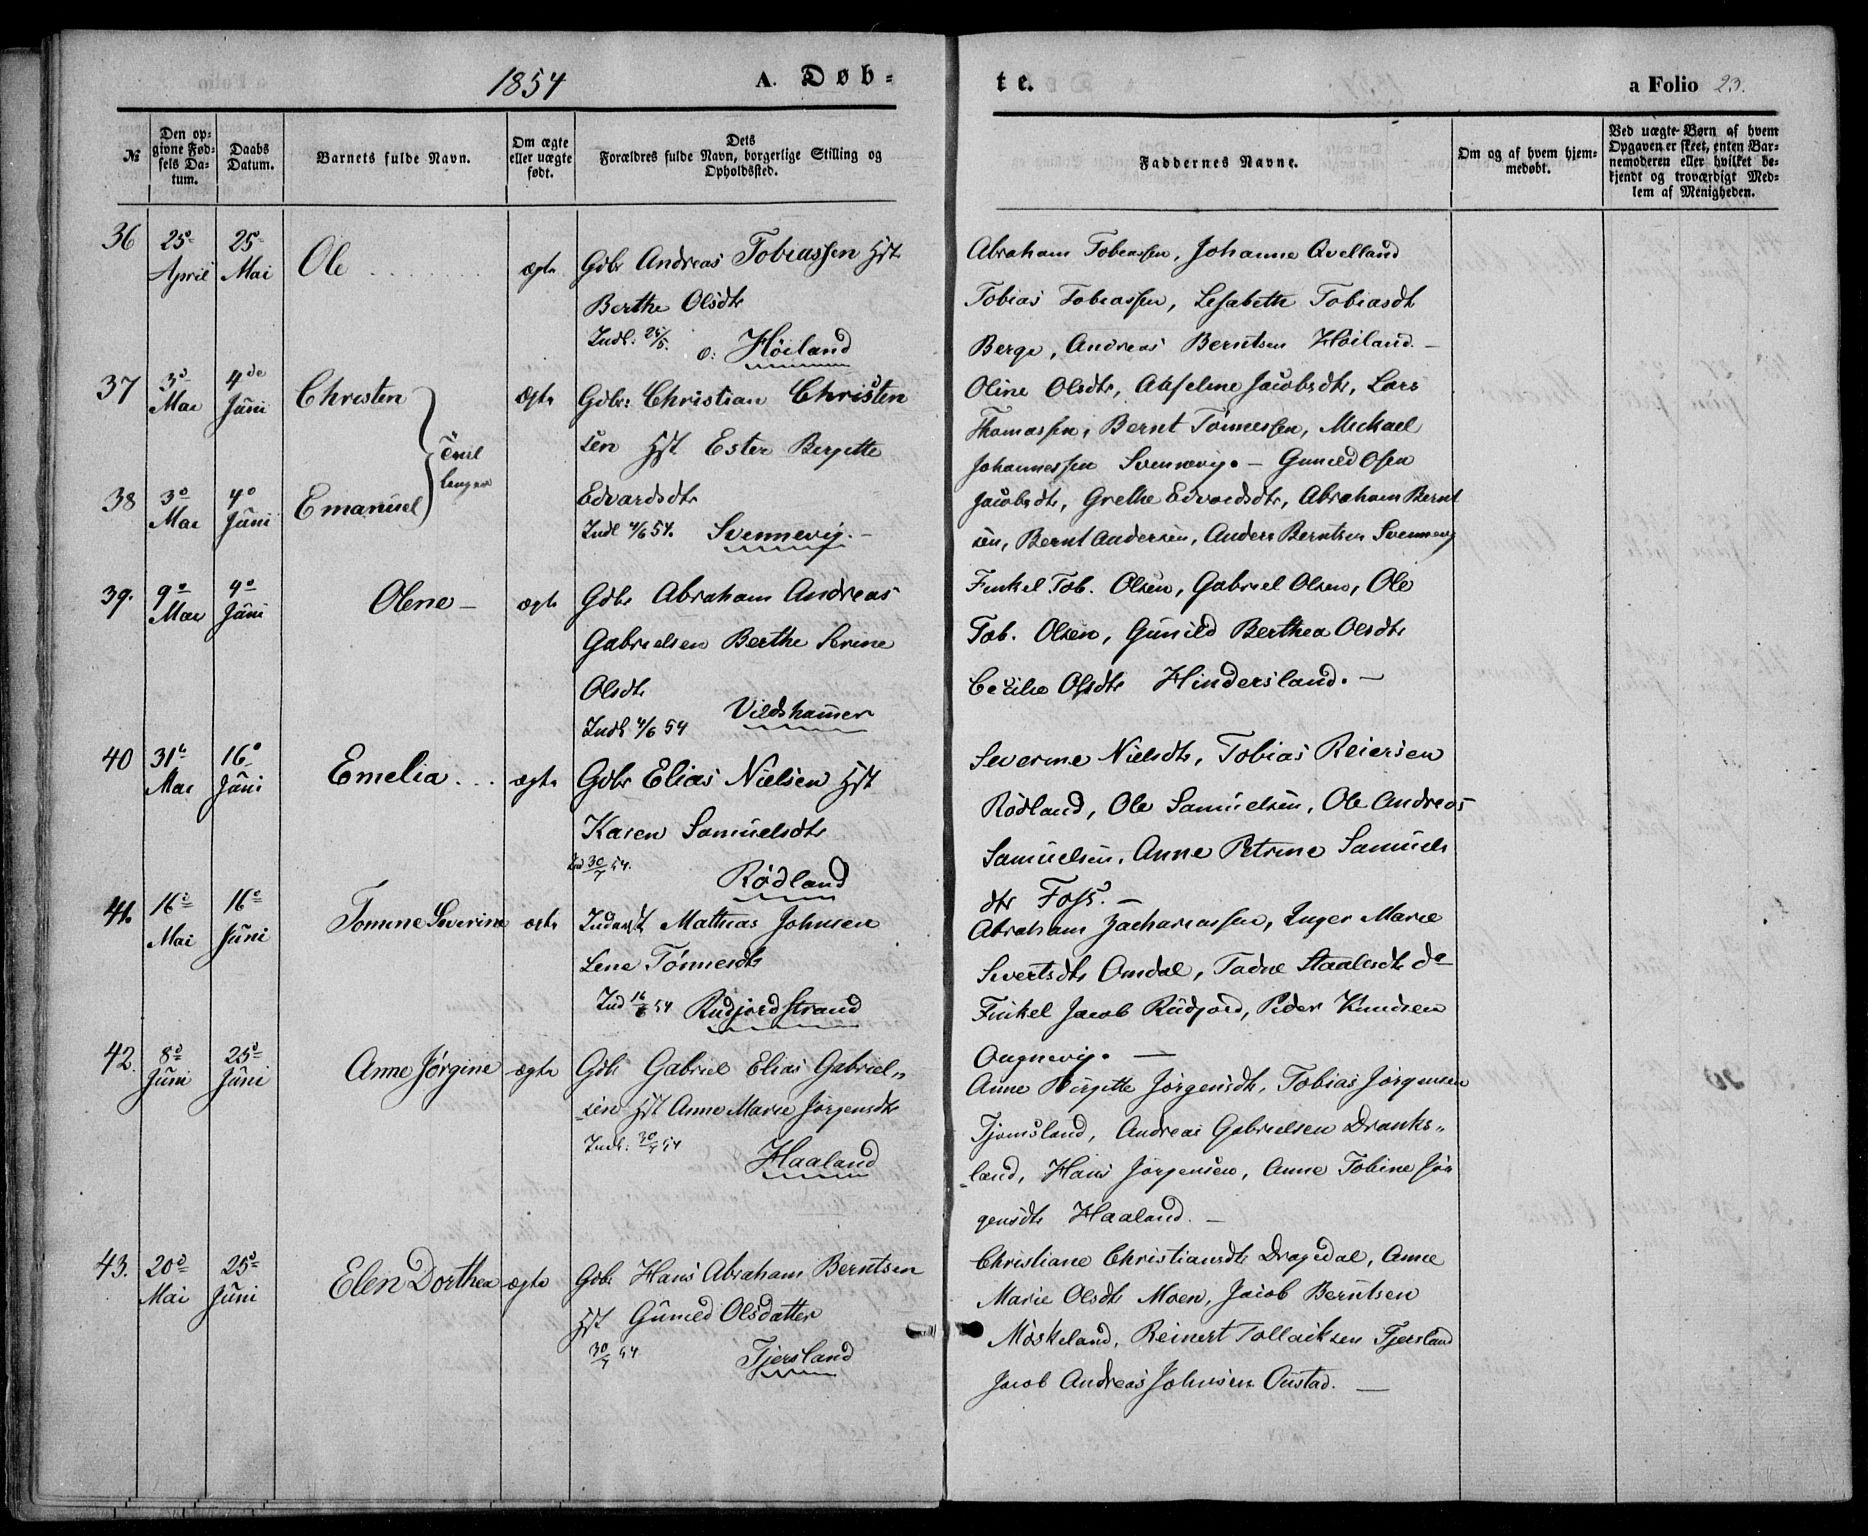 1854 A. Døb-
te. a Folio 23.
№
Den op-
givne Fød-
sels Da-
tum.
Daabs
Datum.
Barnets fulde Navn.
Om ægte
eller uægte
født.
Dets
Forældres fulde Navn, borgerlige Stilling og
Opholdssted.
Faddernes Navne.
Om og af hvem hjem-
medøbt.
Ved uægte Børn af hvem
Opgaven er skeet, enten Bar-
nemoderen eller hvilket be-
kjendt og troværdigt Med-
lem af Menigheden.
36 25de April 25de Mai Ole ægte Gdbr Andreas Tobiassen Hst
Berthe Olsdtr
Indl. 25/5. o: Høiland
Abraham Tobiassen, Johanne Qvelland
Tobias Tobiassen, Lisabethe Tobiasdt
Berge, Andreas Berntsen Høiland. —
37 3d Mai 4de Juni Christen Ægte Gdbr: Christian Christen
sen Hst Ester Bergitte
Tvil
linger
38 3d Mai 4d Juni Emanuel Edvardsdtr
Indl 4/6 54. Svennevig. —
Oline Olsdtr, Axseline Jacobsdtr, Lars
Thomassen, Bernt Tønnessen, Mickael
Johannessen Svennevig. — Gunild Osen
Jacobsdtr, Grethe Edvardsdtr, Abraham Bernt
sen, Bernt Andersen, Anders Berntsen Svennevig
39. 9d Mai 4d Juni Olene — ægte Gdbr Abraham Andreas
Gabrielsen Berthe Serine
Olsdtr
Indl 4/6 54 Vildshammer
Enkel Tob. Olsen, Gabriel Olsen, Ole
Tob. Olsen, Gunild Berthea Olsdtr
Cecilie Olsdtr Hindersland. —
40 31te Mai 16d Juni Emelia ægte Gdbr Elias Nielsen Hst
Karen Samuelsdtr
Ind 30/7 54. Rødland
Severine Nielsdtr, Tobias Reiersen
Rødland, Ole Samuelsen, Ole Andreas
Samuelsen, Anne Petrine Samuels
dtr Foss. —
41. 16de Mai 16de Juni Tomine Severine ægte Inderst Mathias Johnsen
Lene Tønnesdtr
Ind 16/6 54 Rudjord Strand
Abraham Zachariassen, Inger Marie
Sivertsdtr Omdal, Tadne Staalesdtr do
Enkel Jacob Rudjord, Peder Knudsen
Ougnevig. —
42. 8d Juni 25d Juni Anne Jørgine ægte Gdbr Gabriel Elias Gabriel„
sen Hst Anne Marie Jørgensdtr
Indl. 30/7 54 Haaland
Anne Birgitte Jørgensdtr, Tobias Jørgensen
Tjomsland, Andreas Gabrielsen Dranks„
land, Hans Jørgensen, Anne Tobine Jør
gensdtr Haaland. —
43. 20d Mai 25d Juni Elen Dorthea ægte Gdbr Hans Abraham Berntsen
Hst Gunild Olsdatter
30/7 54. Tjersland
Christiane Christiansdtr Dragedal, Anne
Marie Olsdtr Moen, Jacob Berntsen
Møskeland, Reinert Tollaksen Tjersland
Jacob Andreas Johnsen Oustad. —